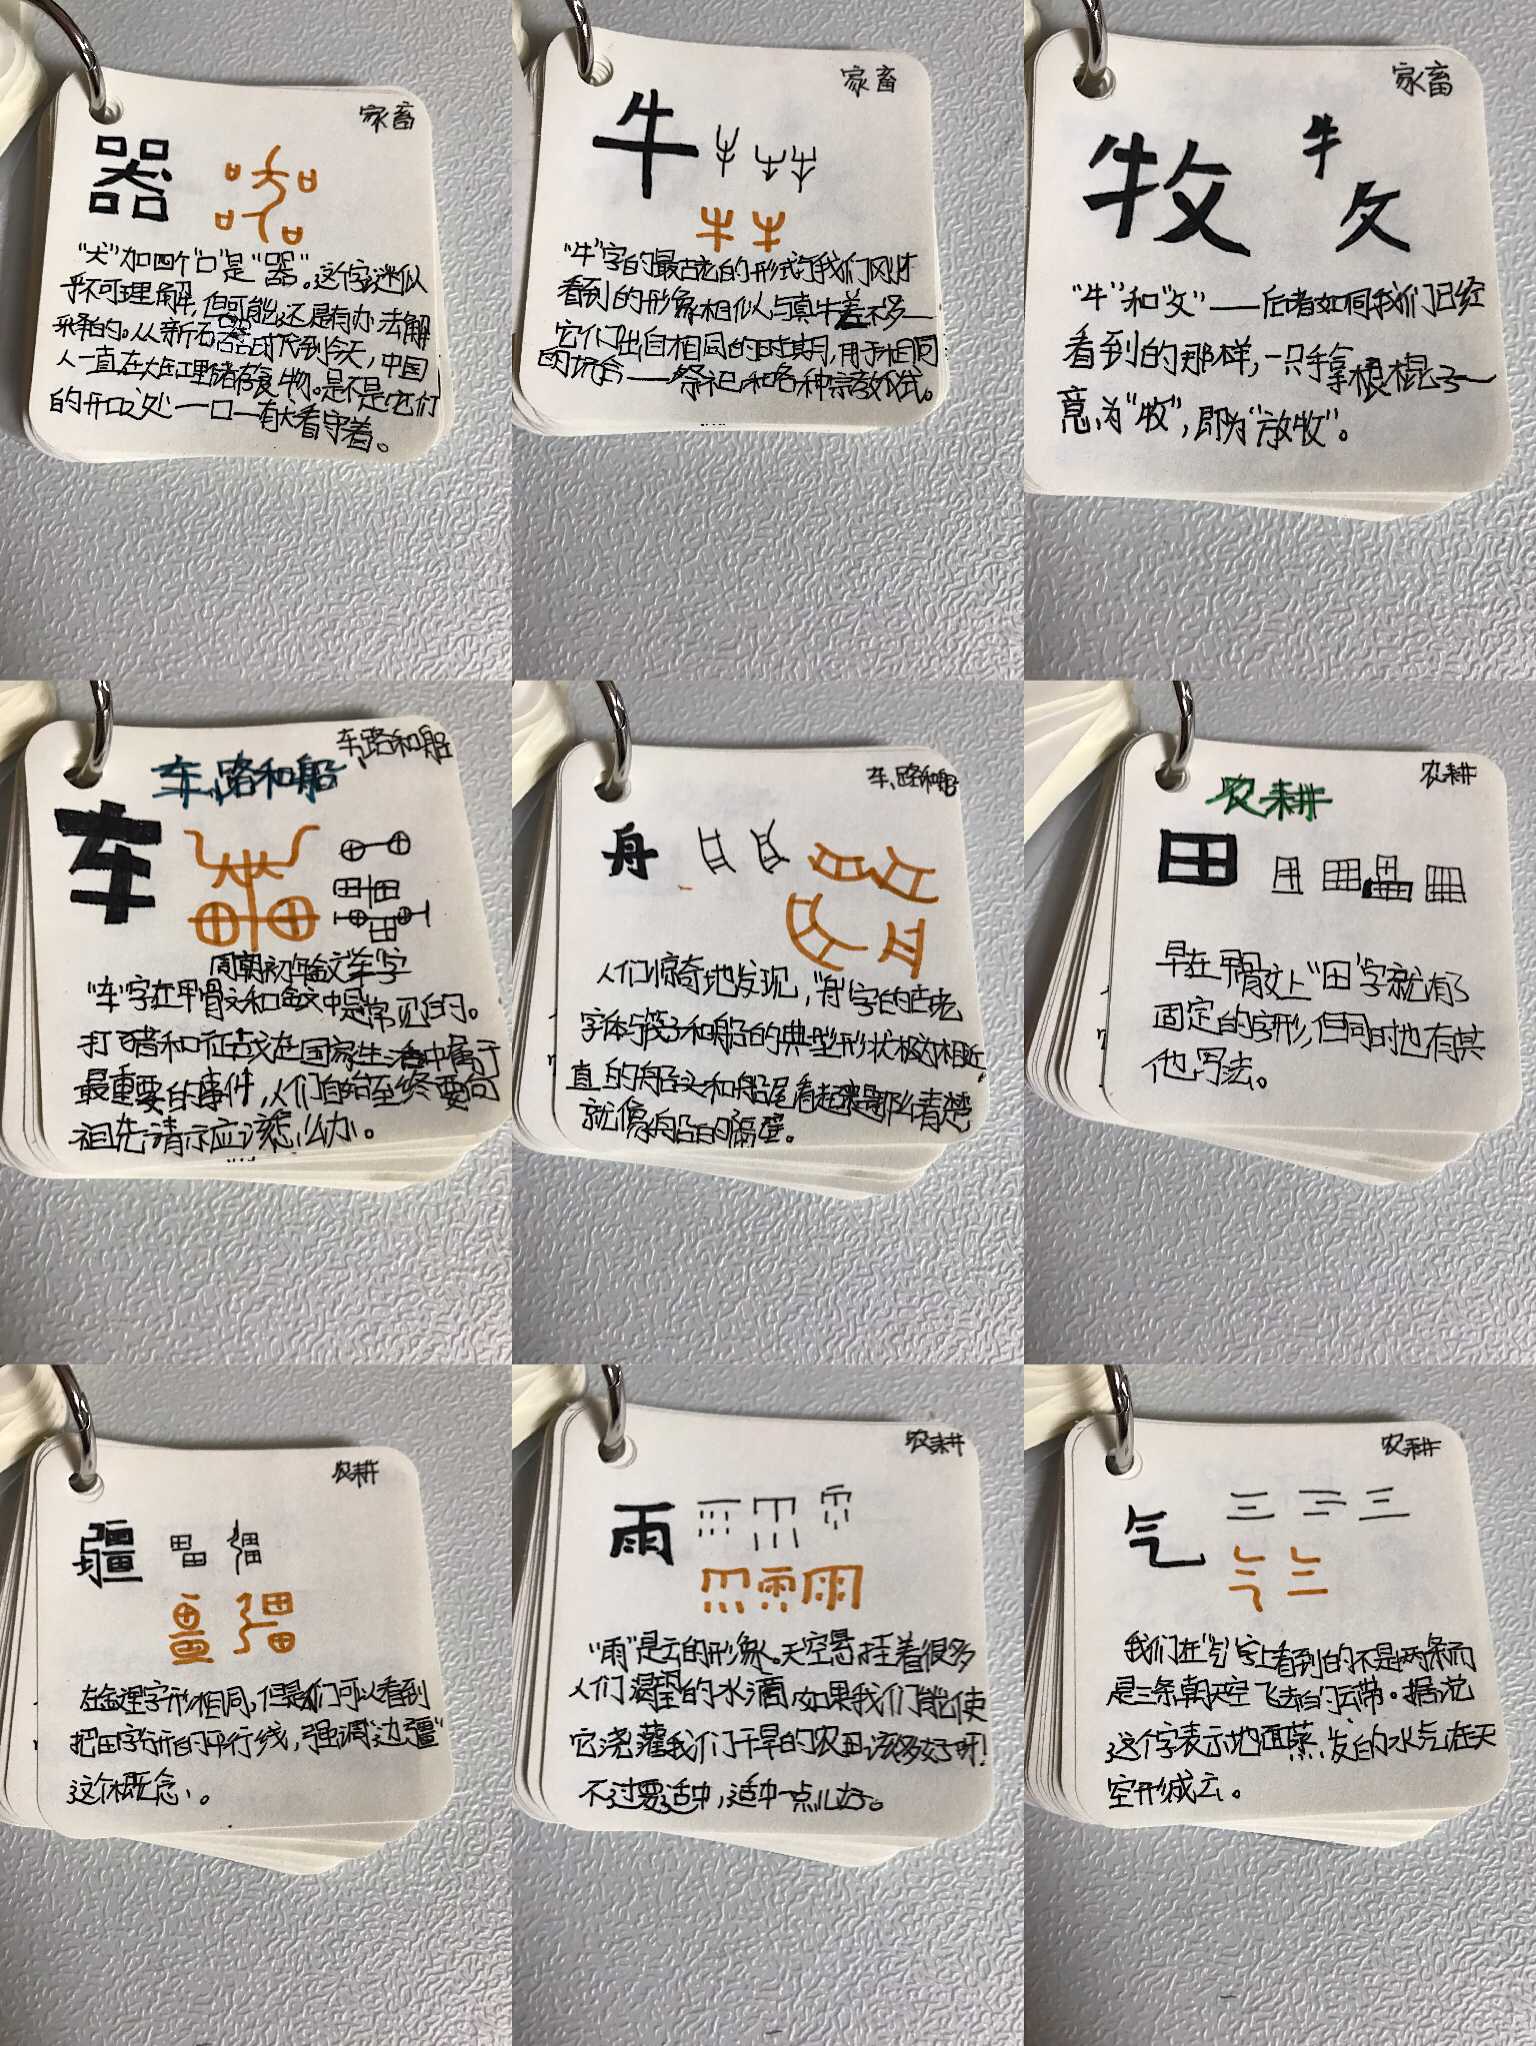 家畜
器
"犬"加四个"口"是"器"。这个字谜似
乎不可理解,但可能还是有办法解
释的。从新石器时代到今天,中国
人一直在大缸里储存食物。是不是它们
的开口之处一口一有犬看守着。
家畜
牛
"牛"字的最古老的形式与我们刚才
看到的形象相似与真牛差不多一
它们出自相同的时期,用于相同
的场合——祭祀和各种宗教仪式。
家畜
牧
牛
攵
"牛"和"攵"——后者如同我们已经
看到的那样,一只手拿根棍子一
意为"牧",即为"放牧"。
车、路和船
车、路和船
车
周朝初年金文"车"字
"车"字在甲骨文和金文中是常见的。
打猎和征战在国家生活中属于
最重要的事件,人们自始至终要向
祖先请示应该怎么办。
车、路和船
舟
人们惊奇地发现,"舟"字的古老
字体与筏子和船的典型形状极为相近
直的船头和船尾看起来是那么清楚
就像船的隔壁。
农耕
农耕
田
早在甲骨文上"田"字就有了
固定的字形,但同时也有其
他写法。
农耕
疆
在金文里字形相同,但是我们可以看到
把田字分开的平行线,强调"边疆"
这个概念。
农耕
雨
"雨"是云的形象。天空悬挂着很多
人们渴望的水滴,如果我们能使
它浇灌我们干旱的农田该多好呀!
不过要适中,适中一点儿好。
农耕
气
我们在"气"字上看到的不是两条而
是三条朝天空飞去的云带。据说
这个字表示地面蒸发的水气在天
空形成云。